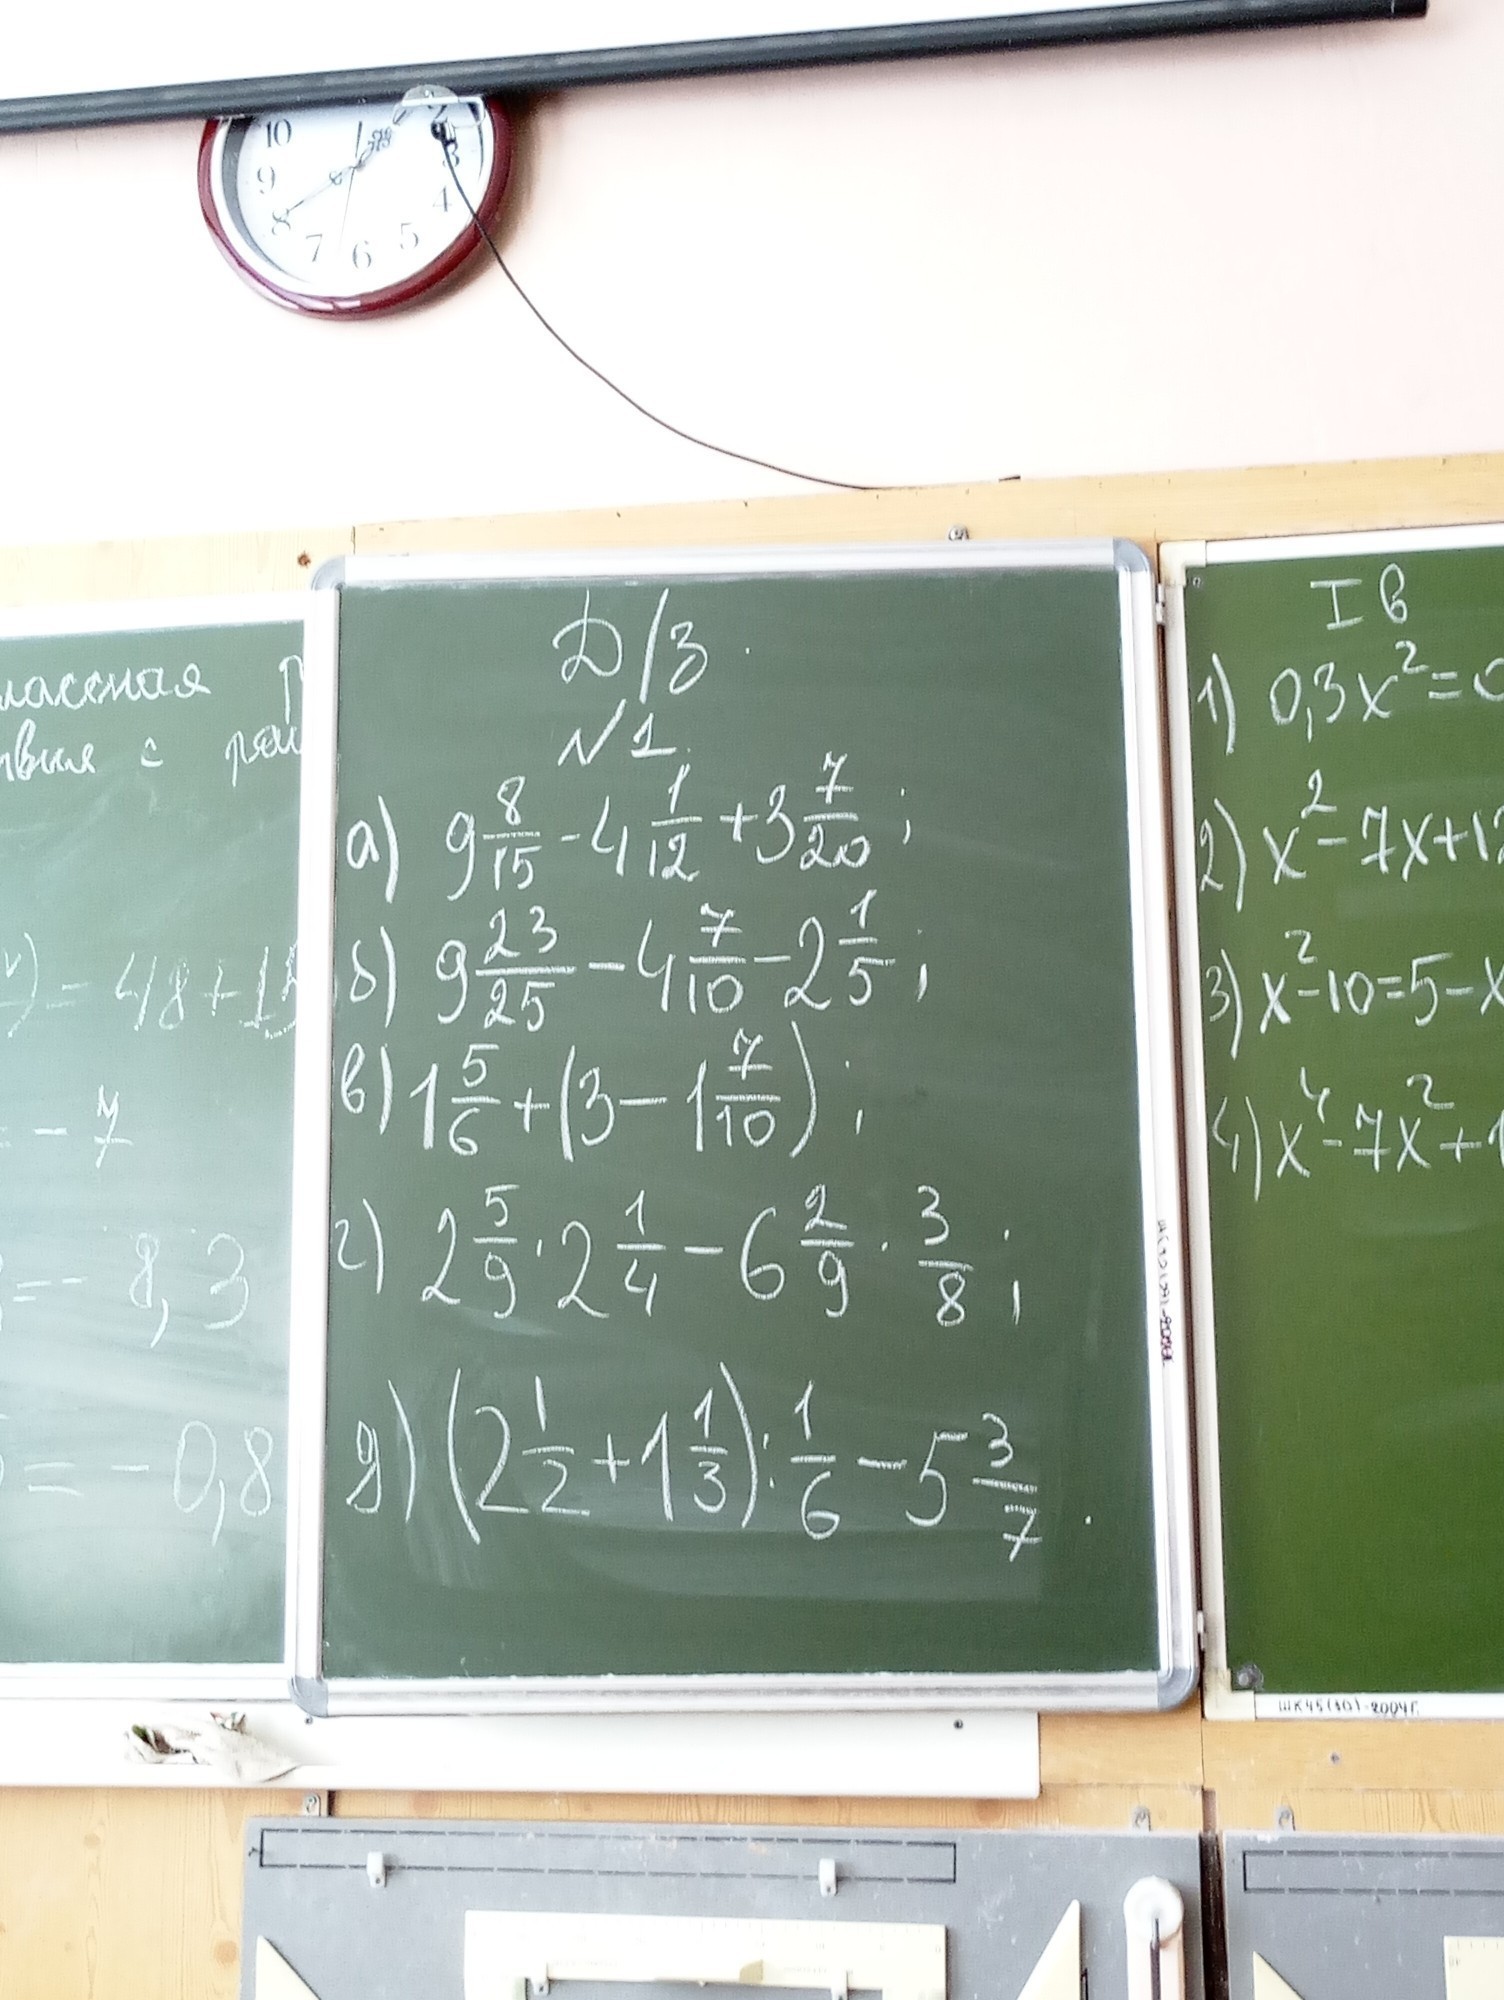 10
9
8
7
6
5
4
3
2
= 48+15
= - 7
= - 8,3
= - 0,8
Д/з.
№1.
а) 9 8/15 - 4 1/12 + 3 7/20;
б) 9 23/25 - 4 7/10 - 2 1/5;
в) 1 5/6 + (3 - 1 7/10);
г) 2 5/9 · 2 1/4 - 6 2/9 · 3/8;
д) (2 1/2 + 1 1/3) : 1/6 - 5 3/7.
I в
1) 0,3x² = 0
2) x² - 7x + 12
3) x² - 10 = 5 - x
4) x⁴ - 7x² + 1
ШК45(30)-2004г.